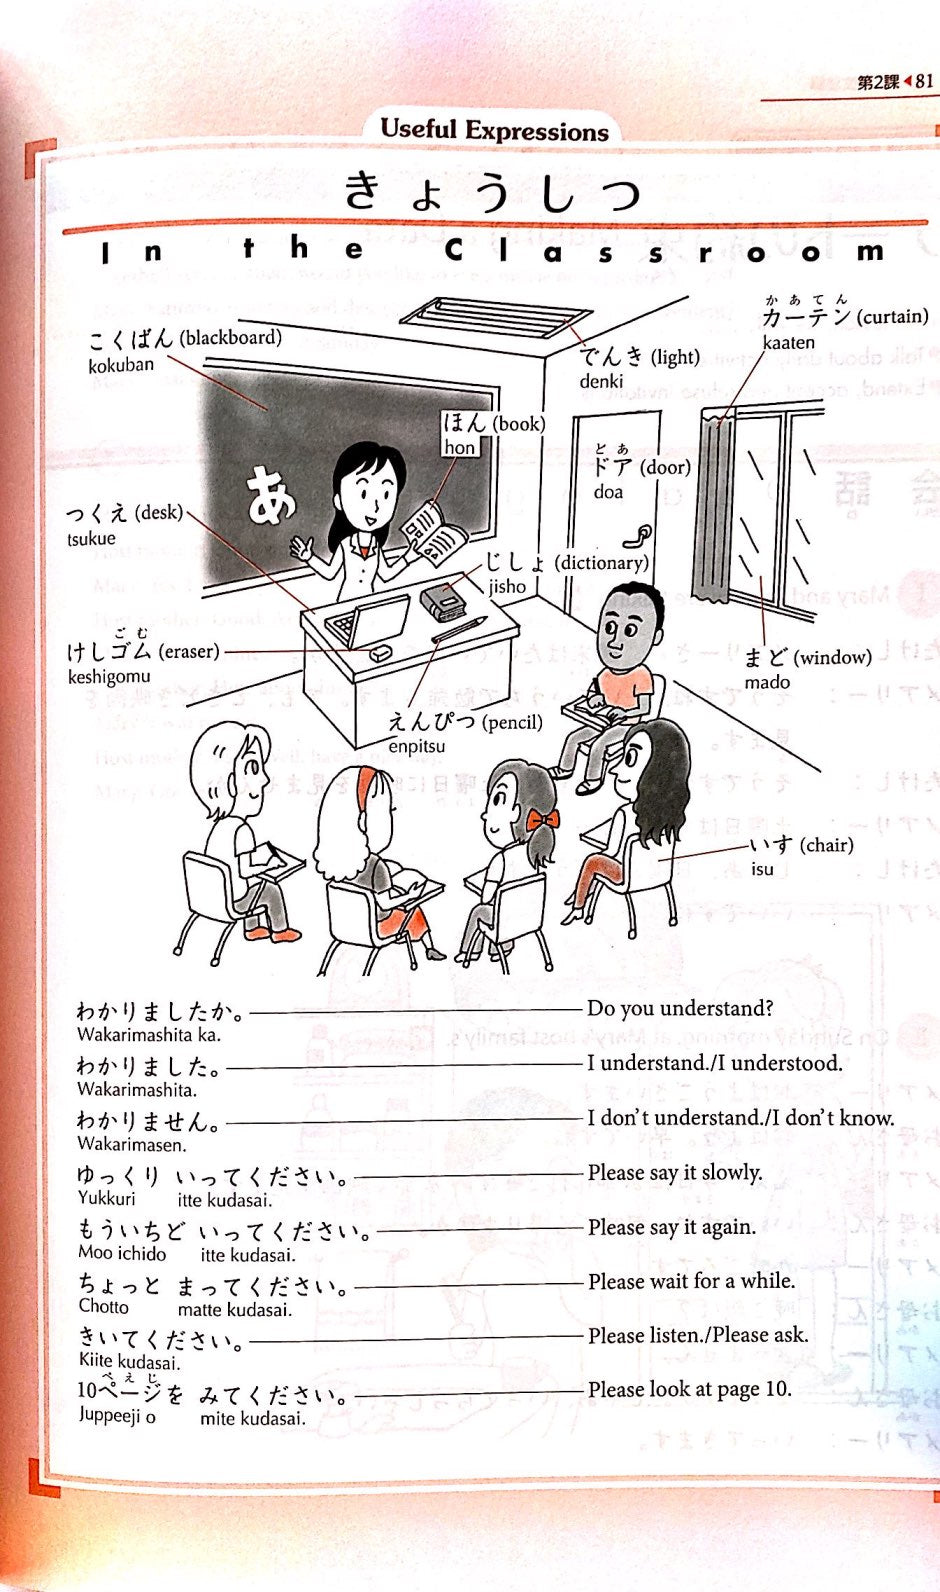 第2課◀81
Useful Expressions
きょうしつ
In the Classroom
こくばん (blackboard)
kokuban
でんき (light)
denki
かあてん
カーテン (curtain)
kaaten
ほん (book)
hon
とあ
ドア (door)
doa
あ
つくえ (desk)
tsukue
じしょ (dictionary)
jisho
ごむ
けしゴム (eraser)
keshigomu
まど (window)
mado
えんぴつ (pencil)
enpitsu
いす (chair)
isu
わかりましたか。 Do you understand?
Wakarimashita ka.
わかりました。 I understand./I understood.
Wakarimashita.
わかりません。 I don't understand./I don't know.
Wakarimasen.
ゆっくり いってください。 Please say it slowly.
Yukkuri itte kudasai.
もういちど いってください。 Please say it again.
Moo ichido itte kudasai.
ちょっと まってください。 Please wait for a while.
Chotto matte kudasai.
きいてください。 Please listen./Please ask.
Kiite kudasai.
ぺえじ
10ページを みてください。 Please look at page 10.
Juppeeji o mite kudasai.